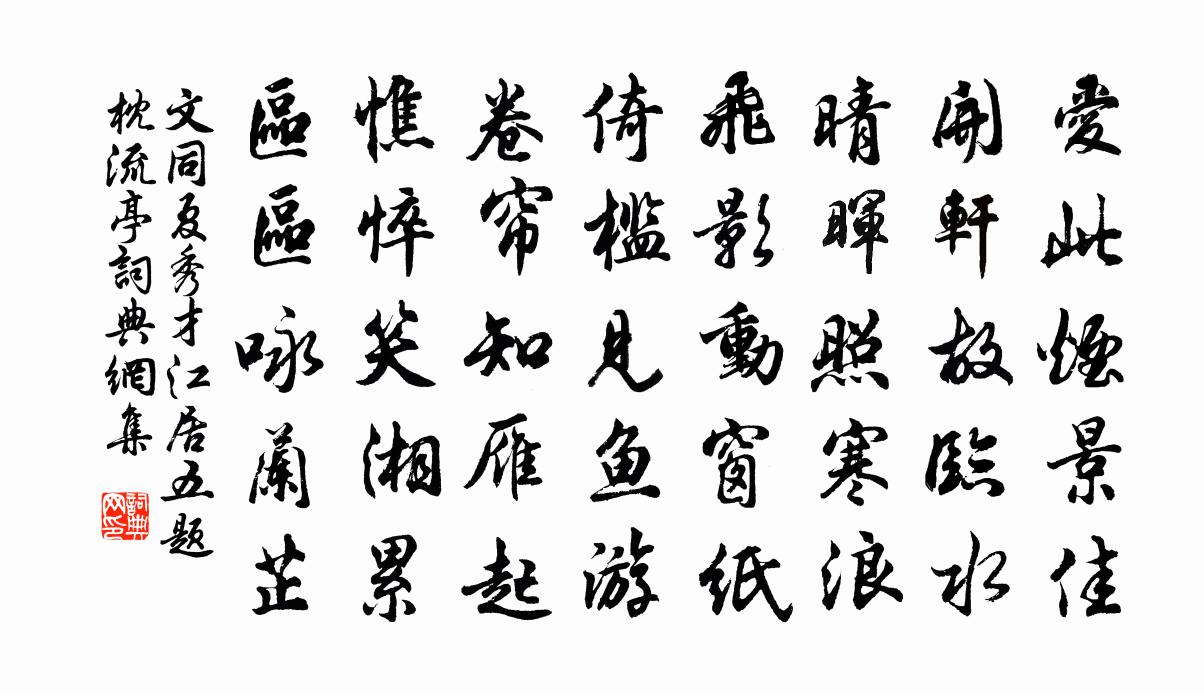 愛此煙景佳
開軒故臨水
晴暉照寒浪
飛影動窗紙
倚檻見魚游
卷帘知雁起
憔悴笑湘累
區區咏蘭芷
文同夏秀才江居五题
枕流亭詞典網集
詞典网印